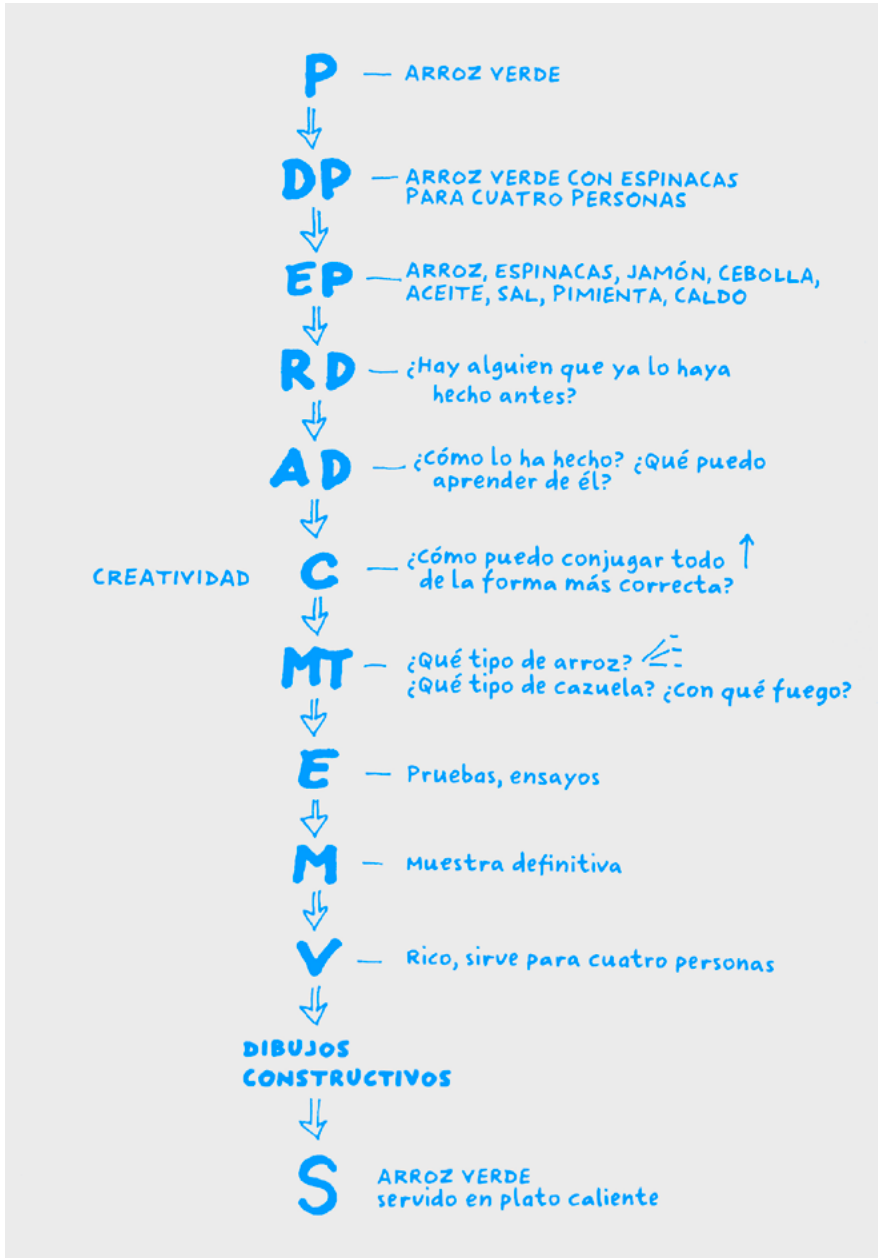 P — ARROZ VERDE
DP — ARROZ VERDE CON ESPINACAS
PARA CUATRO PERSONAS
EP — ARROZ, ESPINACAS, JAMÓN, CEBOLLA,
ACEITE, SAL, PIMIENTA, CALDO
RD — ¿Hay alguien que ya lo haya
hecho antes?
AD — ¿Cómo lo ha hecho? ¿Qué puedo
aprender de él?
CREATIVIDAD C — ¿Cómo puedo conjugar todo
de la forma más correcta?
MT — ¿Qué tipo de arroz?
¿Qué tipo de cazuela? ¿Con qué fuego?
E — Pruebas, ensayos
M — Muestra definitiva
V — Rico, sirve para cuatro personas
DIBUJOS
CONSTRUCTIVOS
S ARROZ VERDE
servido en plato caliente